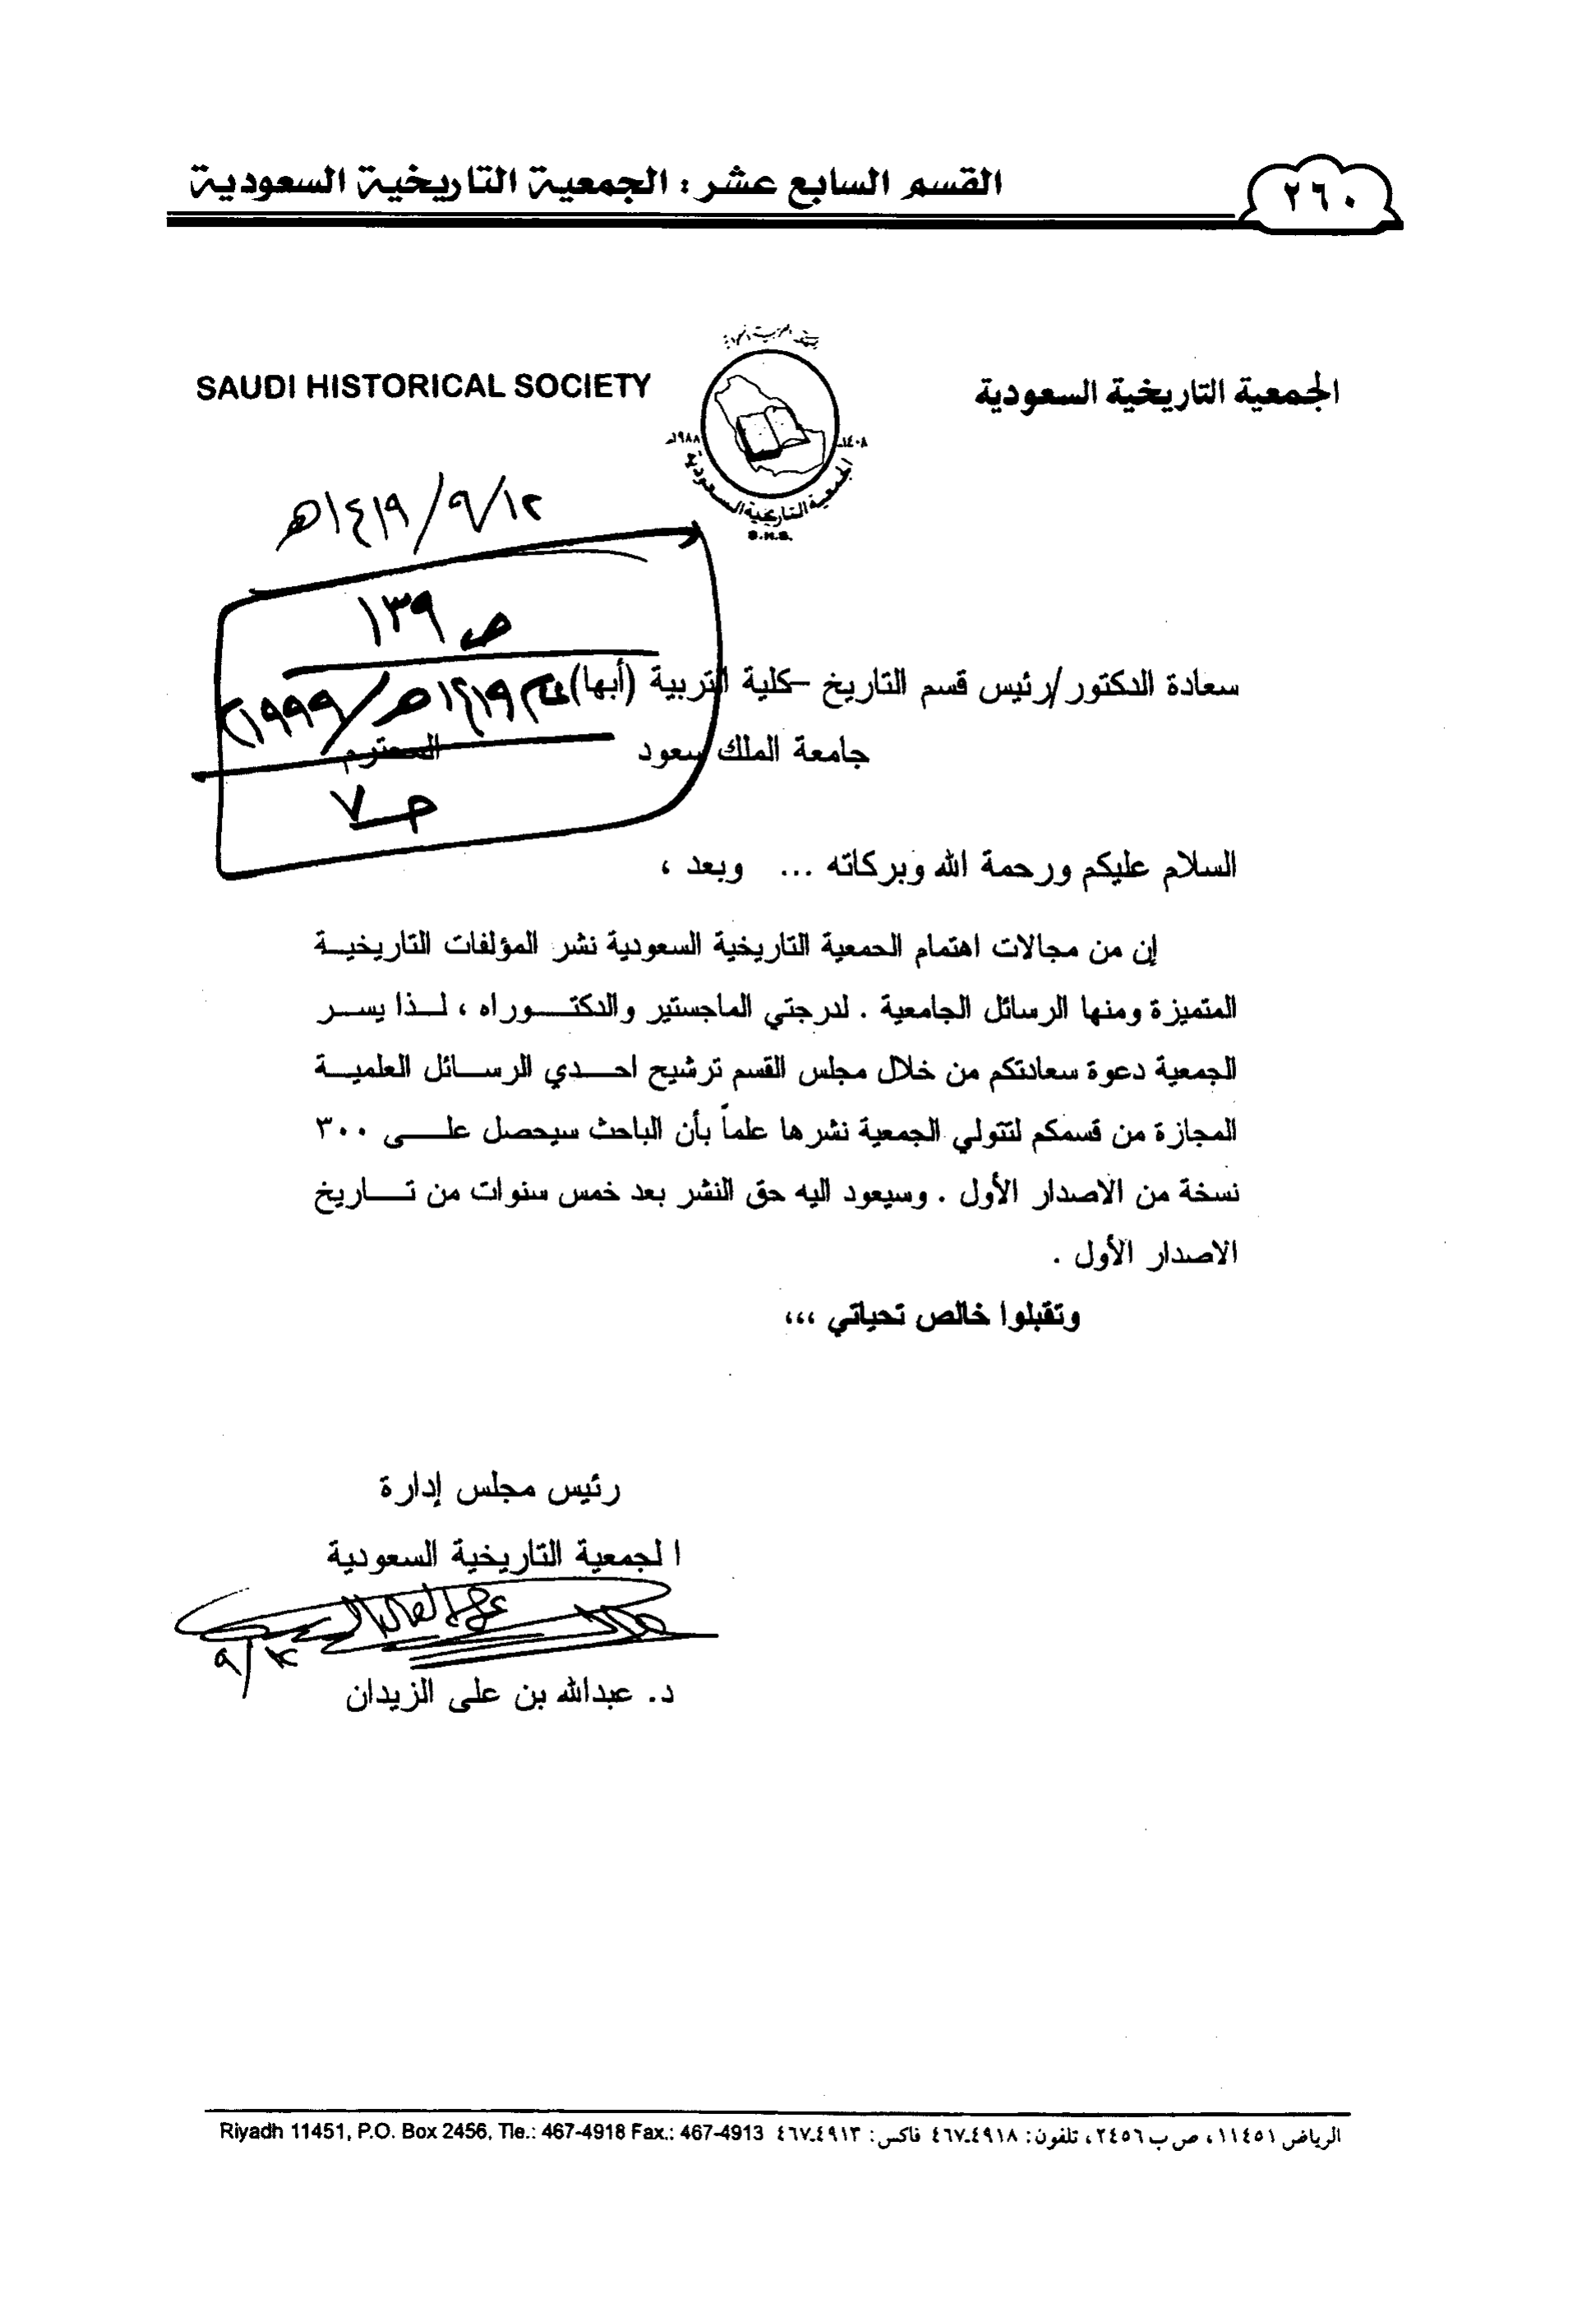 ٢٦٠
القسم السابع عشر : الجمعية التاريخية السعودية
الجمعية التاريخية السعودية
SAUDI HISTORICAL SOCIETY
١٤٠٨هـ
١٩٨٨م
الجمعية التاريخية السعودية
S.H.S.
١٤١٩/٩/١٢هـ
ص ١٣٩
١٤١٩هـ/١٩٩٩م
سعادة الدكتور/رئيس قسم التاريخ –كلية التربية (أبها)
جامعة الملك سعود المحترم
السلام عليكم ورحمة الله وبركاته ... وبعد ،
إن من مجالات اهتمام الجمعية التاريخية السعودية نشر المؤلفات التاريخيـة
المتميزة ومنها الرسائل الجامعية . لدرجتي الماجستير والدكتـــوراه ، لــذا يســر
الجمعية دعوة سعادتكم من خلال مجلس القسم ترشيح احــدي الرســائل العلميــة
المجازة من قسمكم لتتولي الجمعية نشرها علماً بأن الباحث سيحصل علـــى ٣٠٠
نسخة من الاصدار الأول . وسيعود اليه حق النشر بعد خمس سنوات من تـــاريخ
الاصدار الأول .
وتقبلوا خالص تحياتي ،،،
رئيس مجلس إدارة
ا لجمعية التاريخية السعودية
د. عبدالله بن على الزيدان
الرياض ١١٤٥١، ص ب ٢٤٥٦، تلفون: ٤٦٧٤٩١٨ فاكس: ٤٦٧٤٩١٣ Riyadh 11451, P.O. Box 2456, Tle.: 467-4918 Fax.: 467-4913